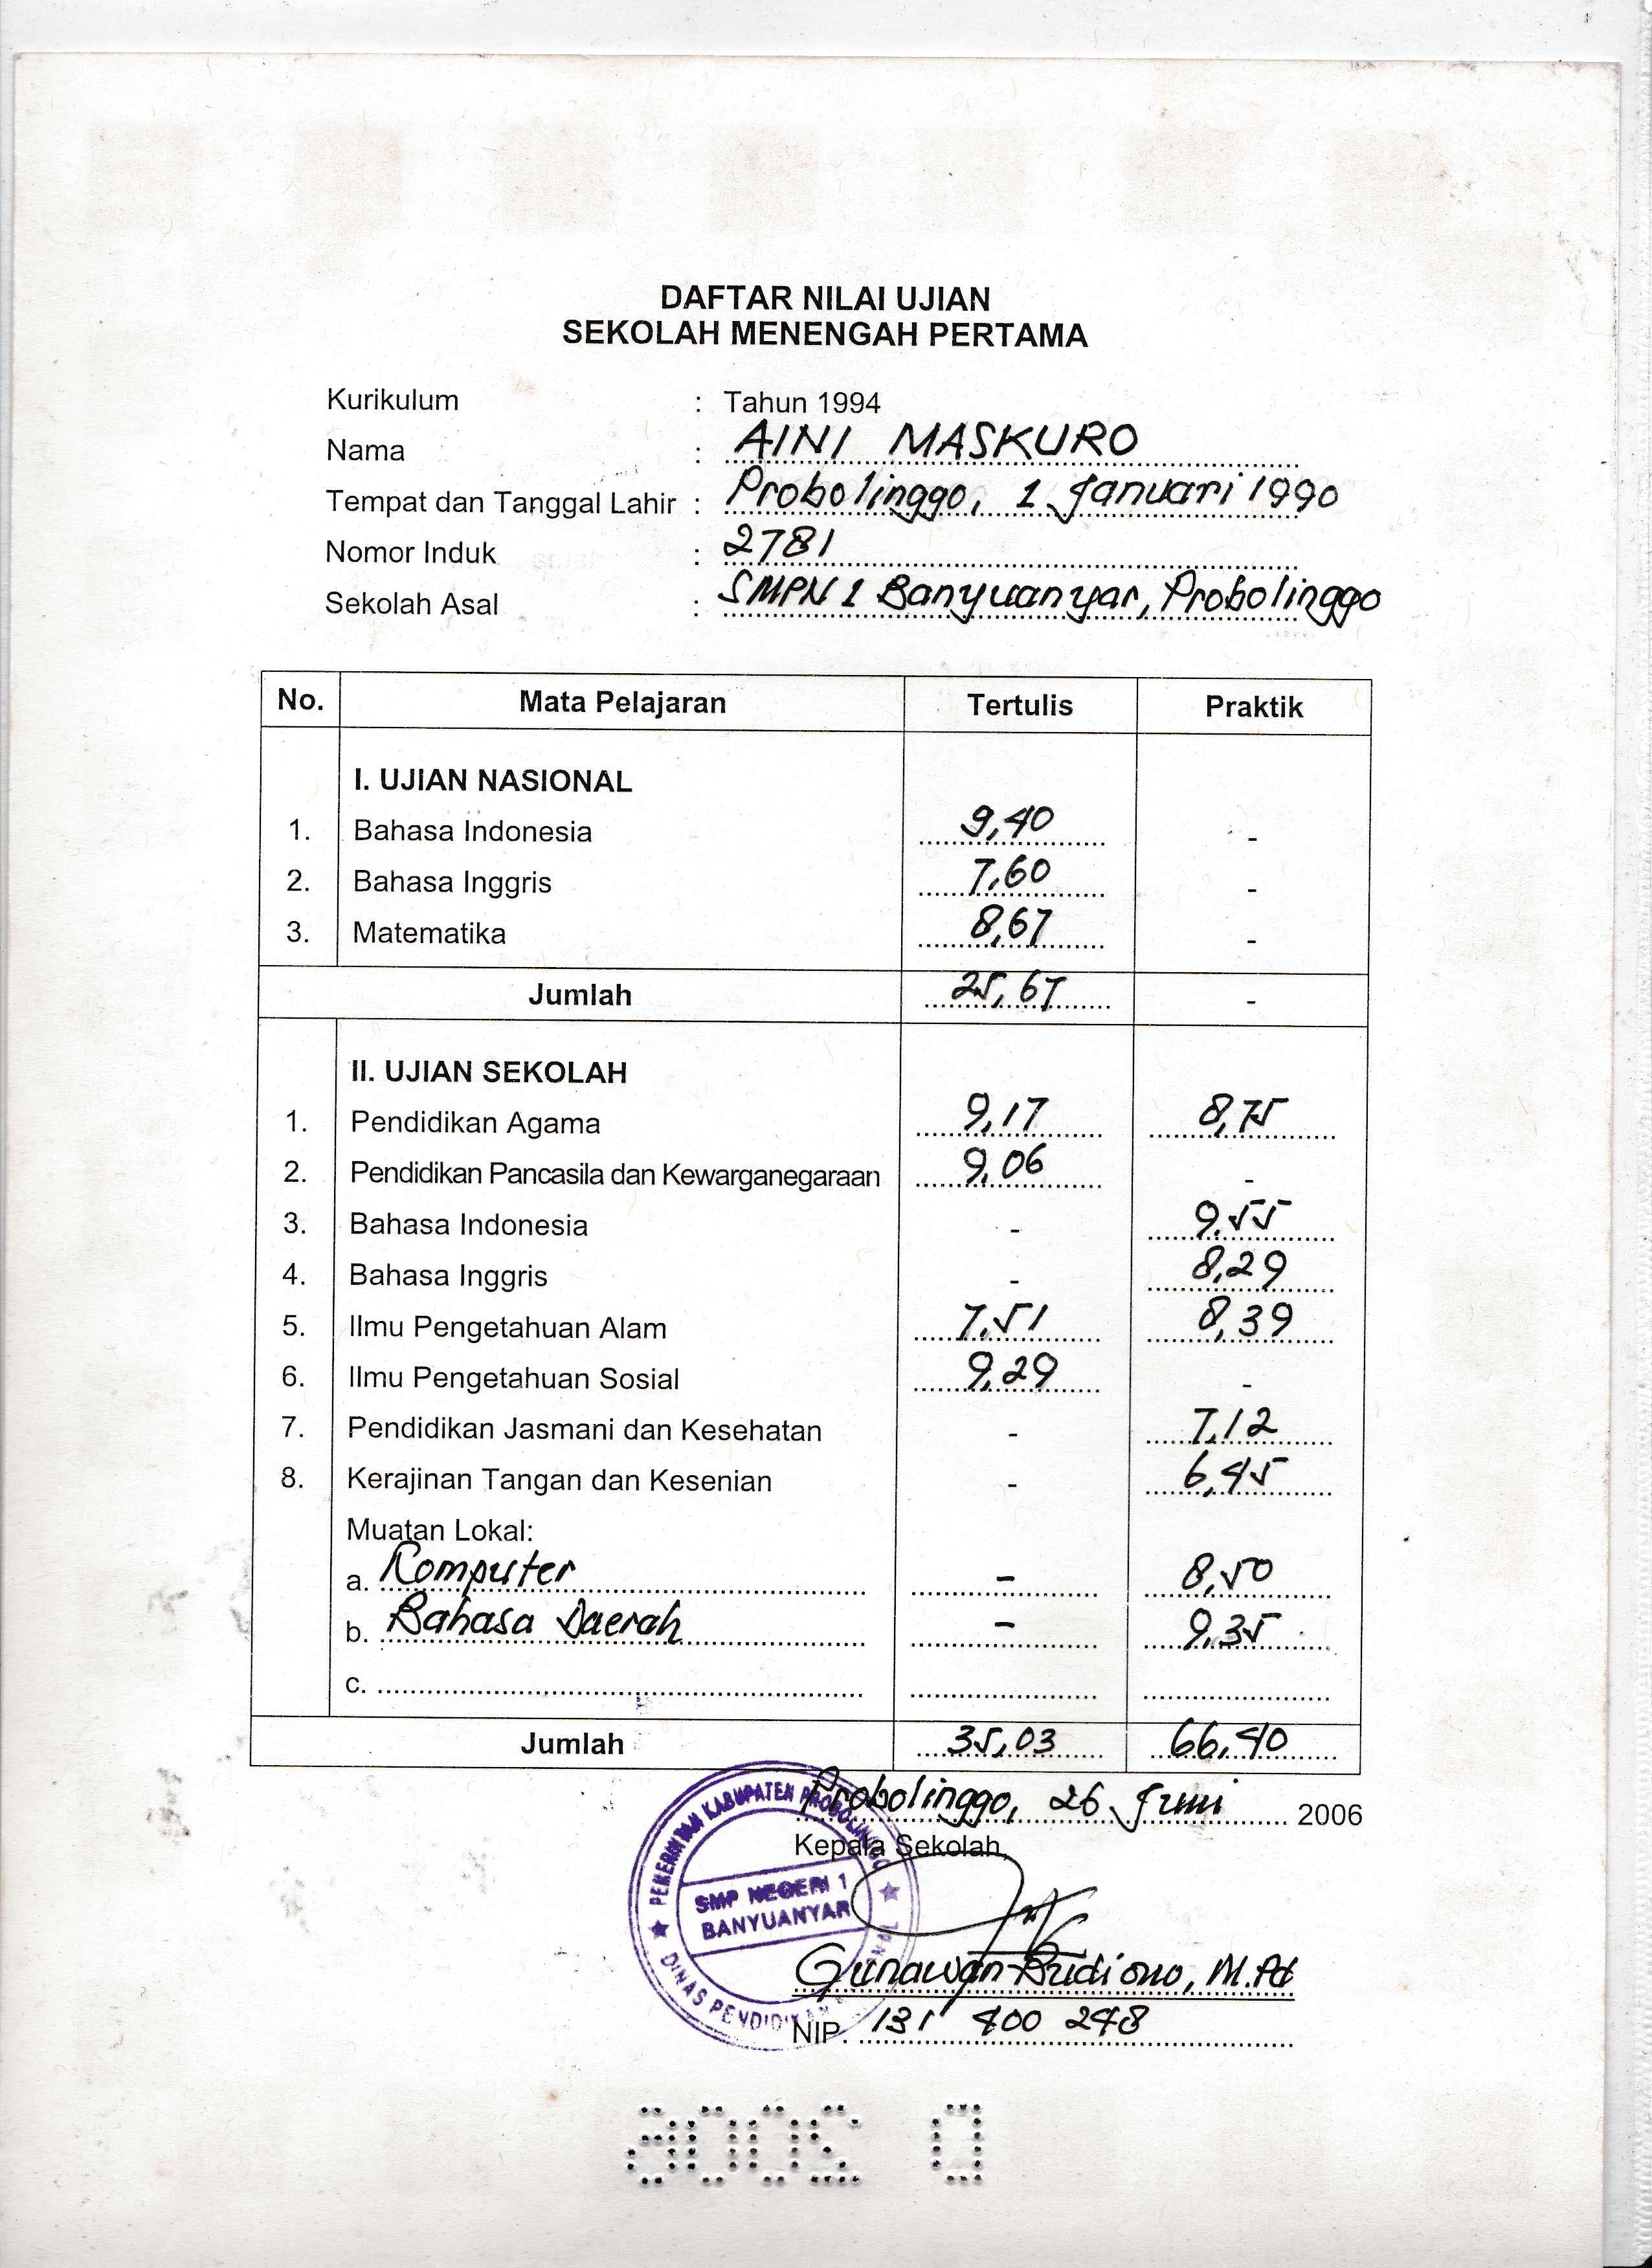 DAFTAR NILAI UJIAN
SEKOLAH MENENGAH PERTAMA
Kurikulum : Tahun 1994
Nama : AINI MASKURO
Tempat dan Tanggal Lahir : Probolinggo, 1 Januari 1990
Nomor Induk : 2781
Sekolah Asal : SMPN 1 Banyuanyar, Probolinggo
No. Mata Pelajaran Tertulis Praktik
I. UJIAN NASIONAL
1. Bahasa Indonesia 9,40 -
2. Bahasa Inggris 7,60 -
3. Matematika 8,67 -
Jumlah 25,67 -
II. UJIAN SEKOLAH
1. Pendidikan Agama 9,17 8,75
2. Pendidikan Pancasila dan Kewarganegaraan 9,06 -
3. Bahasa Indonesia - 9,55
4. Bahasa Inggris - 8,29
5. Ilmu Pengetahuan Alam 7,51 8,39
6. Ilmu Pengetahuan Sosial 9,29 -
7. Pendidikan Jasmani dan Kesehatan - 7,12
8. Kerajinan Tangan dan Kesenian - 6,45
Muatan Lokal:
a. Komputer - 8,50
b. Bahasa Daerah - 9,35
c.
Jumlah 35,03 66,40
Probolinggo, 26 Juni 2006
Kepala Sekolah,
PEMERINTAH KABUPATEN PROBOLINGGO
SMP NEGERI 1
BANYUANYAR
DINAS PENDIDIKAN
Gunawan Budiono, M.Pd
NIP. 131 400 248
D 2006